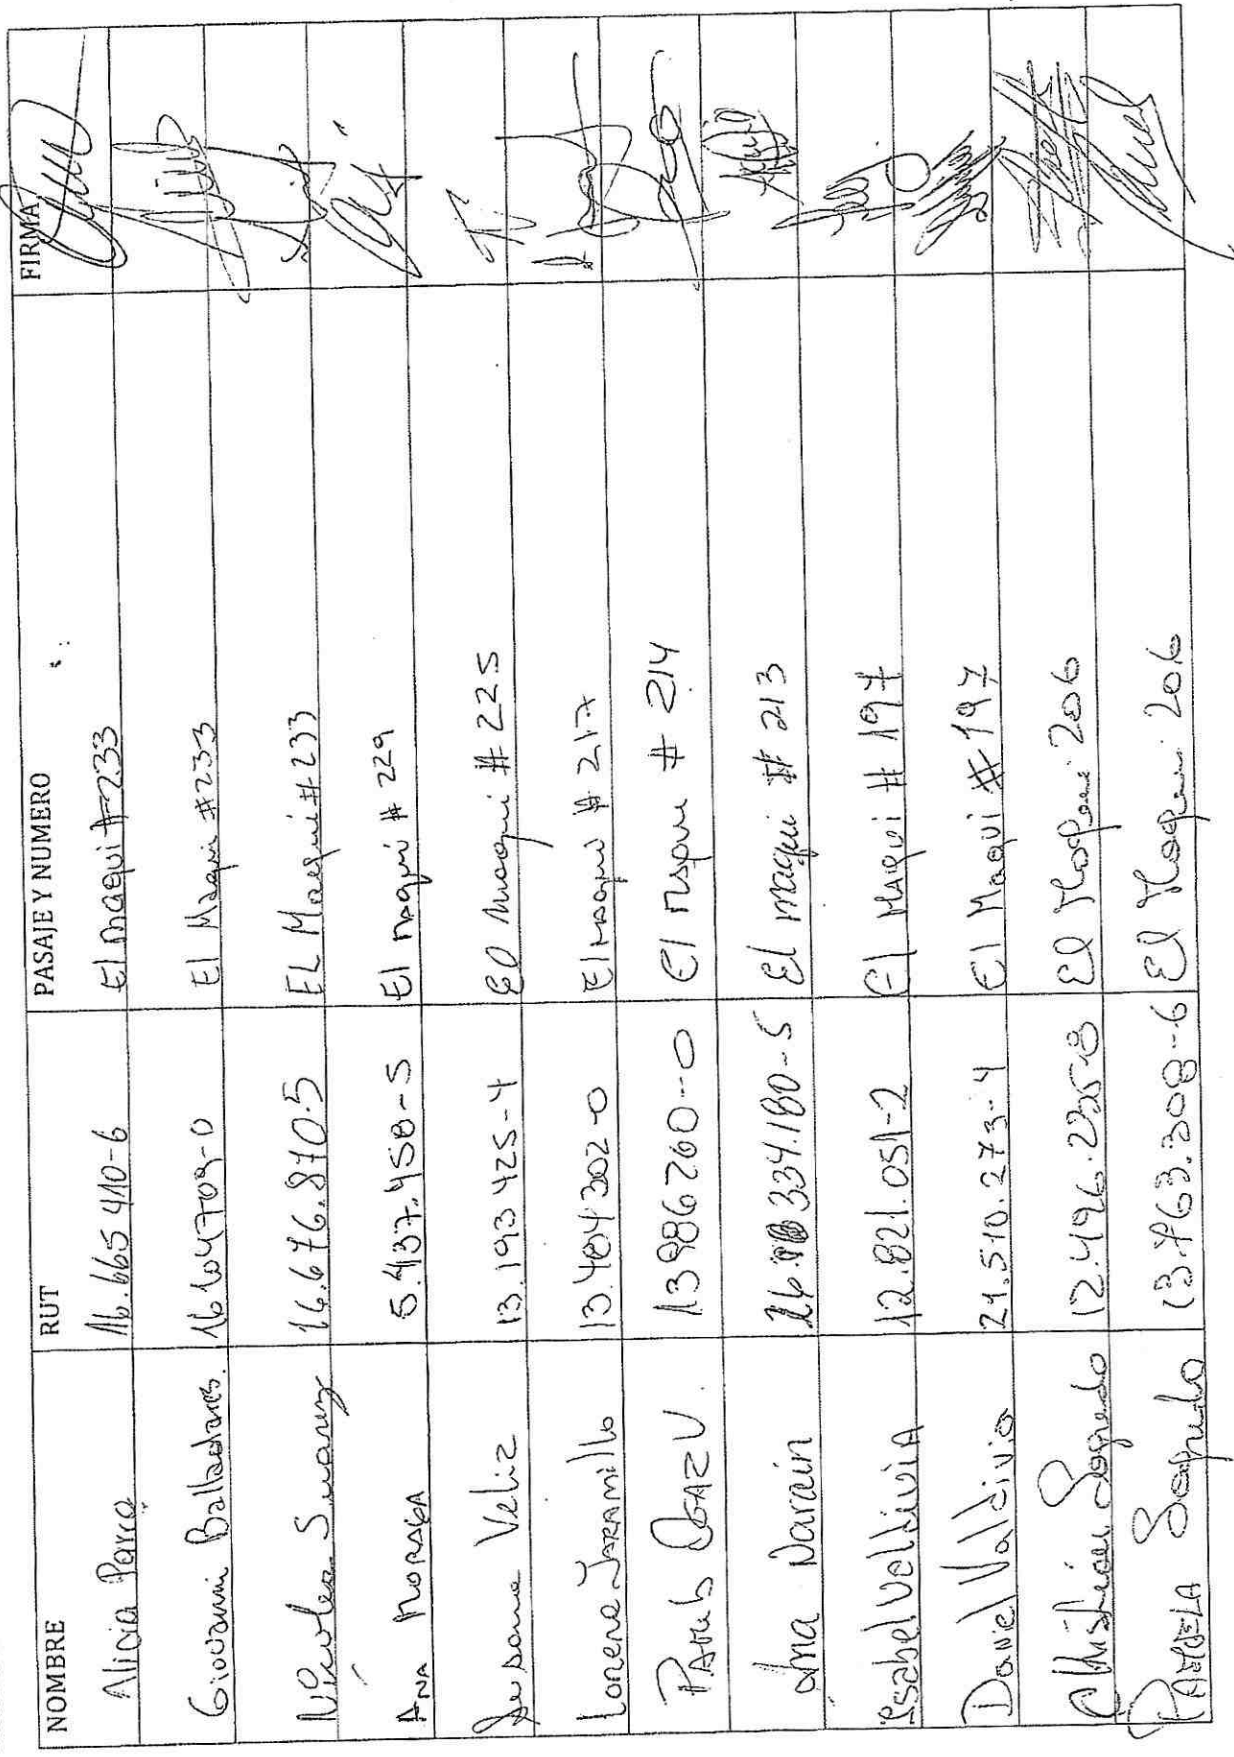 NOMBRE RUT PASAJE Y NUMERO FIRMA
Alicia Parra 16.665 410-6 El maqui #233
Giovanni Balladares. 16 1047709-0 El Maqui #233
Nicoles Suarez 16.676.870.5 EL Maqui #233
ANA MORAGA 5.437.458-5 El maqui # 229
Susana Veliz 13.193 425-4 El maqui # 225
Lorena JARAMILLO 13.484302-0 El maqui # 217
PABLO OGAZ V. 13986260-0 El maqui # 214
Ana Narain 334.180-5 El maqui # 213
Isabel Valdivia 12.821.051-2 El Maqui # 197
Daniel Valdivia 21.510.273-4 El Maqui #197
Christian Sagredo 12.496.235-8 El Maqui 206
PAMELA Sagredo 13.763.308-6 El Maqui 206